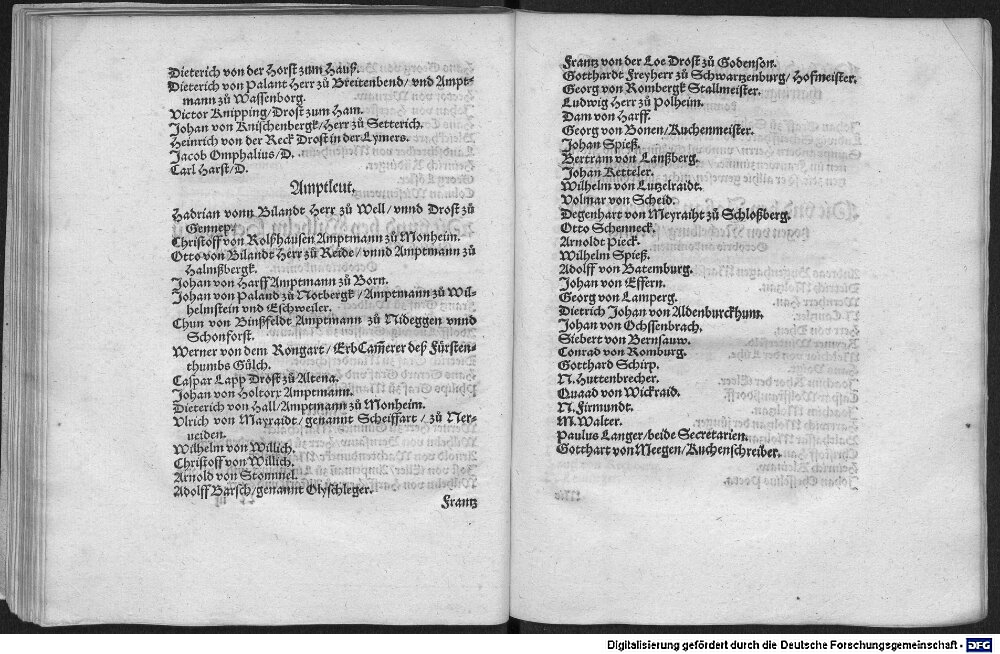 Dieterich von der Horst zum Hauß.
Dieterich von Palant Herr zů Breitenbend/ vnd Ampt-
mann zů Wassenborg.
Victor Knipping/ Drost zum Ham.
Johan von Knischenbergk/ Herr zů Setterich.
Heinrich von der Reck Drost in der Lymers.
Jacob Omphalius/ D.
Carl Harst/ D.
Amptleut.
Hadrian vonn Bilandt Herr zů Well/ vnnd Drost zů
Gennep.
Christoff von Rolßhausen Amptmann zů Monheim.
Otto von Bilandt Herr zů Reide/ vnnd Amptmann zů
Halmßbergk.
Johan von Harff Amptmann zů Born.
Johan von Paland zů Notbergk/ Amptmann zů Wil-
helmstein vnd Eschweiler.
Chun von Binßfeldt Amptmann zů Nideggen vnnd
Schonforst.
Werner von dem Bongart/ ErbCam̃erer deß Fürsten-
thumbs Gülch.
Caspar Lapp Drost zů Altena.
Johan von Holtorx Amptmann.
Dieterich von Hall/ Amptmann zů Monheim.
Vlrich von Mayraidt/ genannt Scheiffart/ zů Ner-
ueiden.
Wilhelm von Willich.
Christoff von Willich.
Arnold von Stommel.
Adolff Barsch/ genannt Olyschleger.
Frantz
Frantz von der Loe Drost zů Godenson.
Gotthardt Freyherr zů Schwartzenburg/ Hofmeister.
Georg von Rombergk Stallmeister.
Ludwig Herr zů Polheim.
Dam von Harff.
Georg von Bonen/ Kuchenmeister.
Johan Spieß.
Bertram von Lanßberg.
Johan Ketteler.
Wilhelm von Lutzelraidt.
Volmar von Scheid.
Degenhart von Meyraiht zů Schloßberg.
Otto Schenneck.
Arnoldt Pieck.
Wilhelm Spieß.
Adolff von Batemburg.
Johan von Effern.
Georg von Lamperg.
Dietrich Johan von Aldenburckhum.
Johan von Ochssenbrach.
Siebert von Bernsauw.
Conrad von Romburg.
Gotthard Schirp.
N. Huttenbrecher.
Quaad von Wickraid.
N. Firmundt.
M. Walter.
Paulus Langer/ beide Secretarien.
Gotthart von Meegen/ Kuchenschreiber.
Digitalisierung gefördert durch die Deutsche Forschungsgemeinschaft - DFG